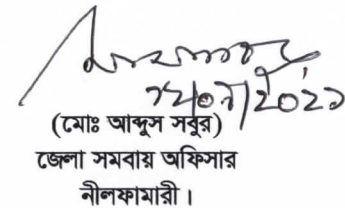 (মোঃ আব্দুস সবুর)
জেলা সমবায় অফিসার
নীলফামারী।